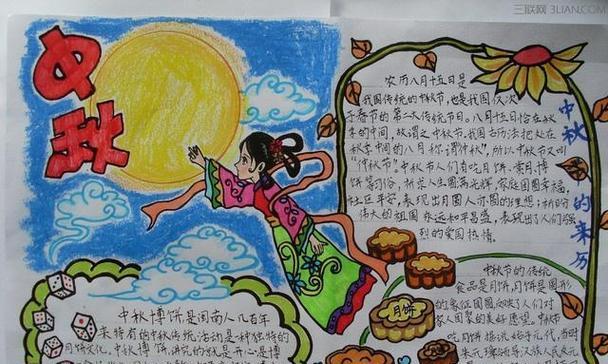 三联网 3LIAN.COM
中秋
农历八月十五日是
我国传统的中秋节,也是我国仅次
于春节的第二大传统节日。八月十五日恰在秋
季的中间,故谓之中秋节,我国古历法把处在
秋季中间的八月称谓"仲秋",所以中秋节又叫
"仲秋节"中秋节人们有吃月饼、赏月、博
饼等习俗,祈求人生圆满光辉,家庭团圆幸福,
社区平安。表现出月圆人亦圆的理想;祈盼
伟大的祖国永远和平昌盛,表现出了人们强
烈的爱国热情。
中秋的来历
中秋节的传统
食品是月饼,月饼是圆形
的象征团圆反映了人们对
家人团聚的美好愿望。中秋节
吃月饼据说始于元代,当时
月饼
中秋博饼是闽南人几百年
来特有的中秋传统活动是种独特的
月饼文化。中秋博饼,讲究的就是开心是博